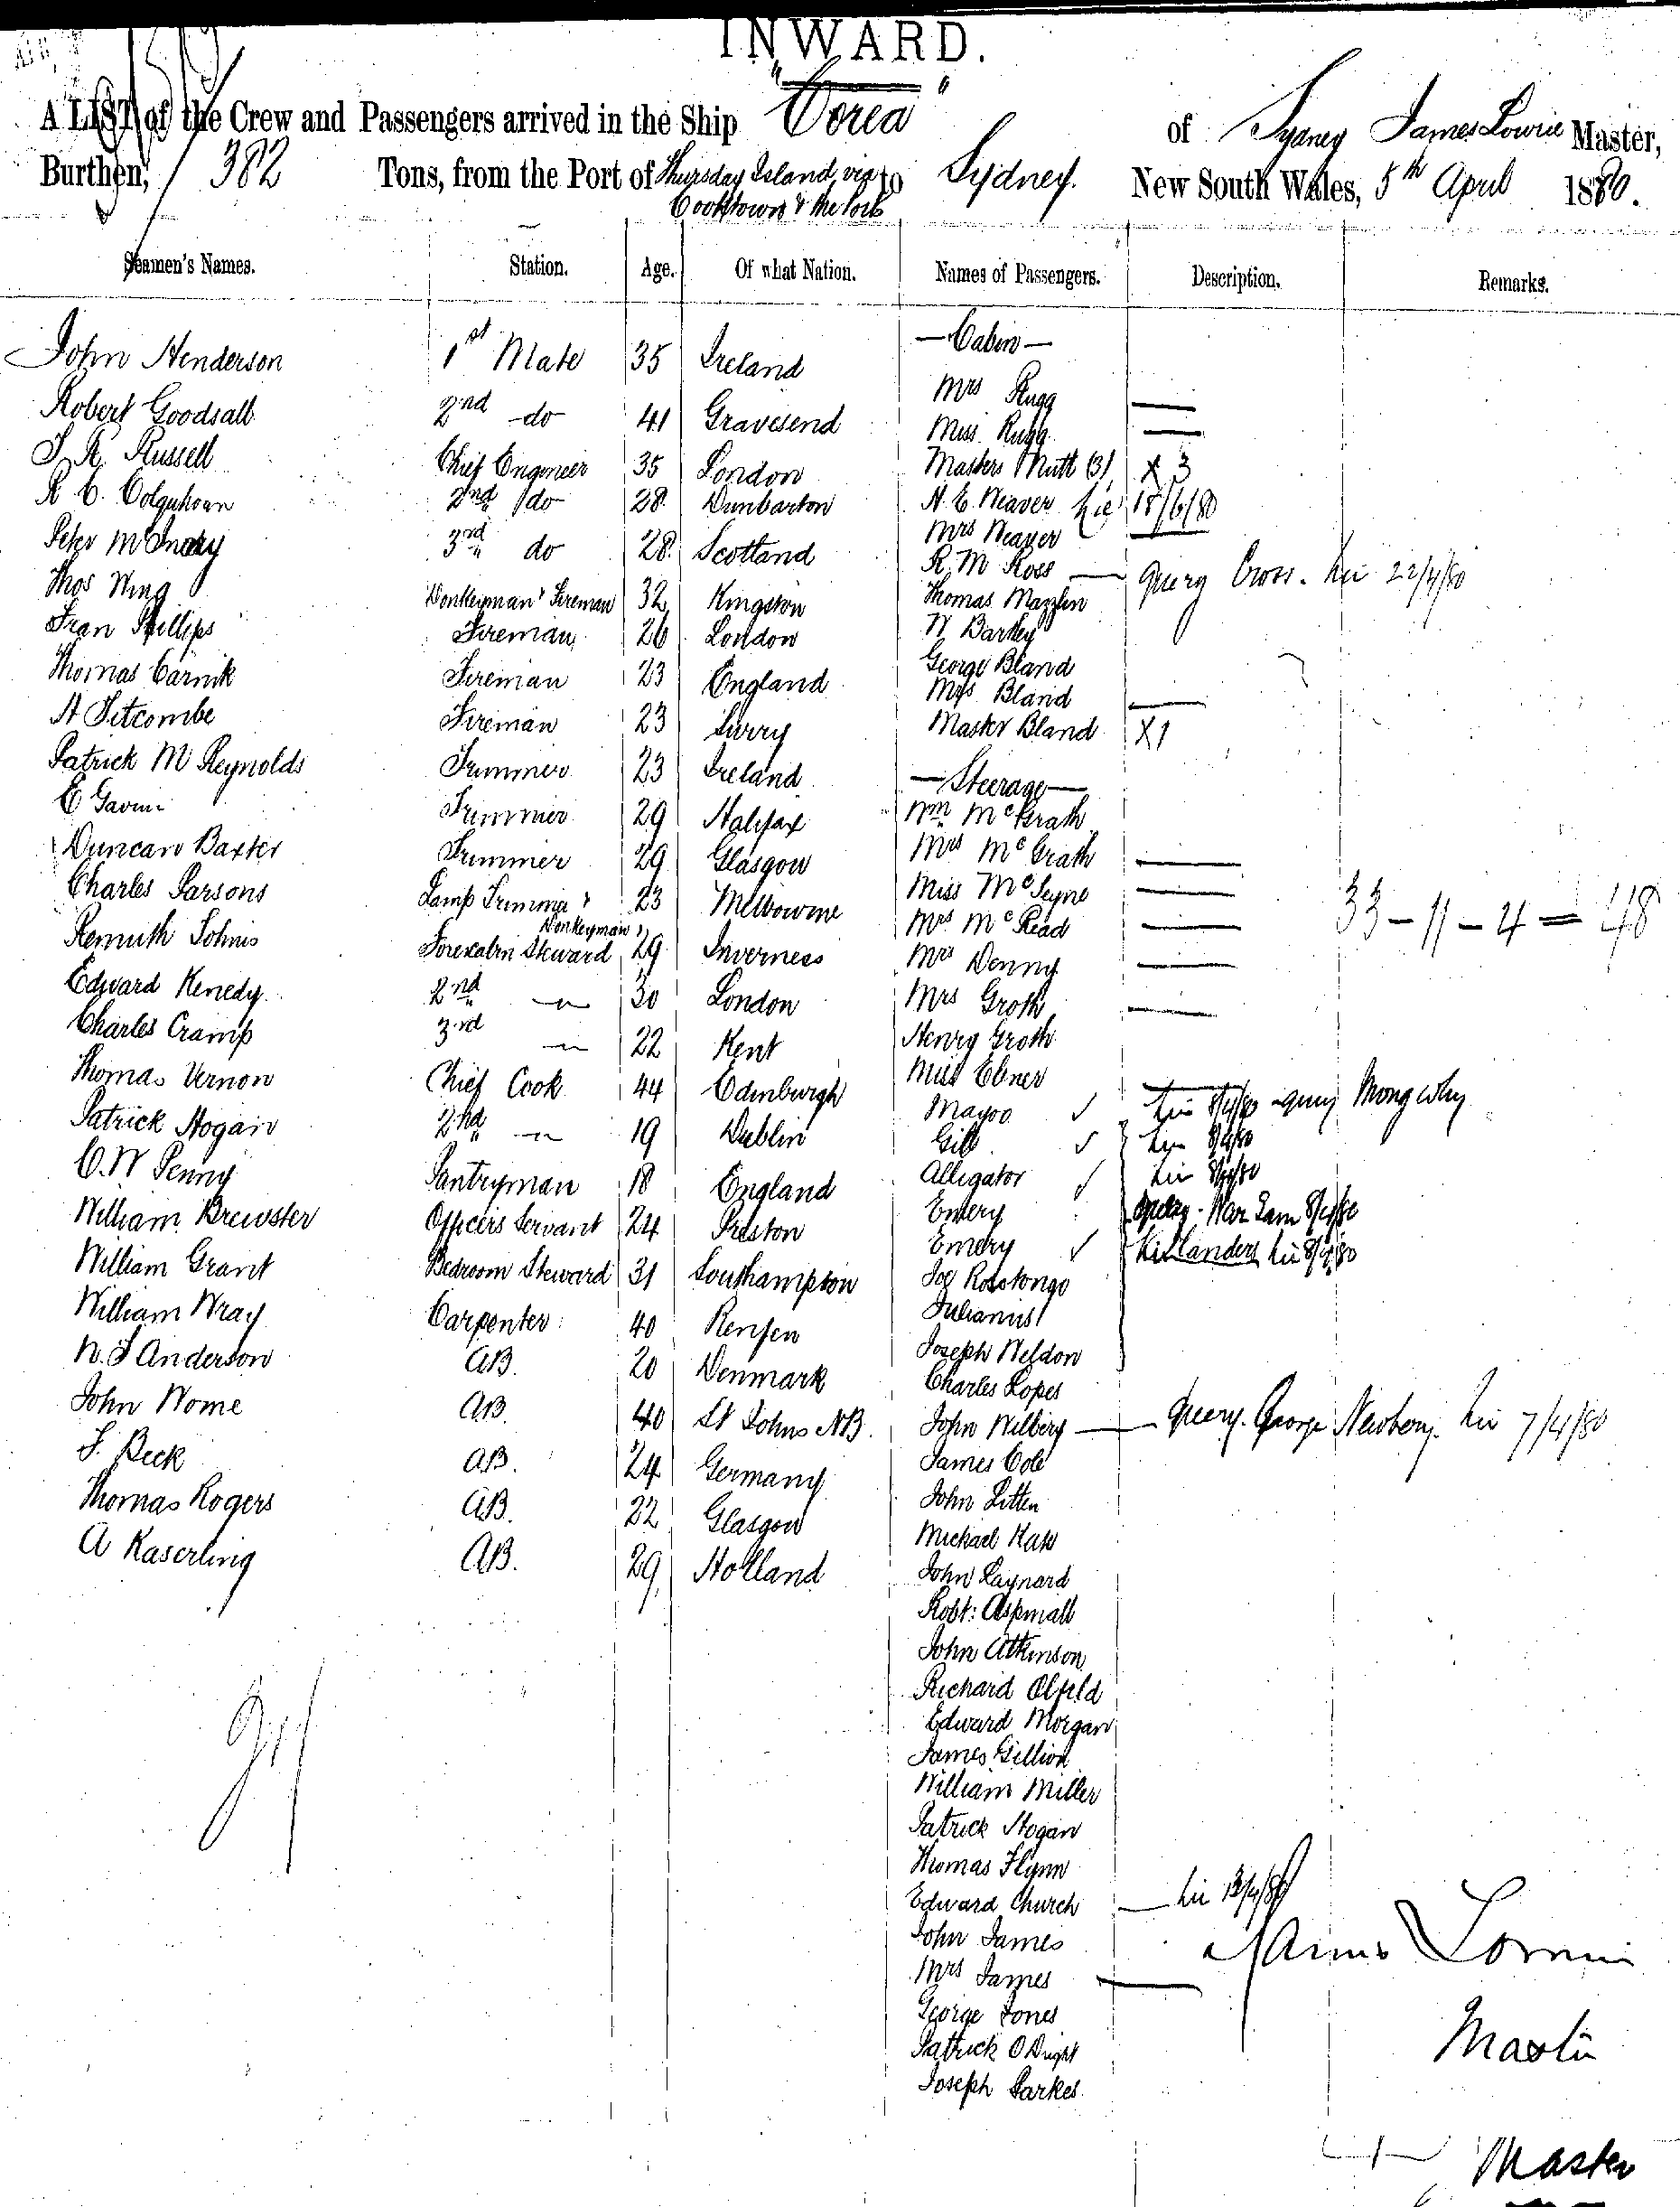 INWARD.
A LIST of the Crew and Passengers arrived in the Ship "Corea" of Sydney James Lowrie Master,
Burthen, 382 Tons, from the Port of Thursday Island via to Sydney. New South Wales, 5th April 1880.
Cooktown & the Ports
Seamen's Names. Station. Age. Of what Nation. Names of Passengers. Description. Remarks.
— Cabin —
John Henderson 1st Mate 35 Ireland
Mrs Rugg —
Robert Goodsall 2nd do 41 Gravesend
Miss Rugg —
J. R. Russell Chief Engineer 35 London
Masters Mutt (3) X 3
R C. Colquhoun 2nd do 28 Dunbarton
A. E. Weaver 18/6/80
Mrs Weaver —
Peter 3rd do 28 Scotland
R. M Ross — query Cross. 22/4/80
Thos Wing Donkeyman & Fireman 32 Kingston
Thomas
Fran Phillips Fireman 26 London
W Bartley
Thomas Carnik Fireman 23 England
George Bland
Mrs Bland —
A Titcombe Fireman 23 Surry
Master Bland X1
Patrick McReynolds Trimmer 23 Ireland
— Steerage —
E Gavin Trimmer 29 Halifax
Wm McGrath
Duncan Baxter Trimmer 29 Glasgow
Mrs McGrath —
Charles Parsons Lamp Trimmer & 23 Melbourne
Donkeyman
Miss —
33 – 11 – 4 = 48
Mrs McRead —
Johns Forecabin Steward 29 Inverness
Mrs Denny —
Edward Kenedy. 2nd 〃 30 London
Mrs Groth —
Charles Cramp 3rd 〃 22 Kent
Henry Groth
Thomas Vernon Chief Cook 44 Edinburgh
Miss Ebner —
Mayoo ✓ 8/4/80 query
Patrick Hogan 2nd 〃 19 Dublin
Gib ✓ 8/4/80
C. W Penny Pantryman 18 England
Alligator ✓ 8/4/80
William Brewster Officers Servant 24 Preston
Emery query 8/4/80
Emery ✓ 8/4/80
William Grant Bedroom Steward 31 Southampton
Joe Rototongo
William Wray Carpenter 40
Julianus
N. J Anderson AB. 20 Denmark
Joseph Weldon
Charles Lopes
John Wome AB. 40 St Johns NB.
John Wilbery — query. George Newbery. 7/4/80
J. Beck AB. 24 Germany
James Cole
Thomas Rogers AB. 22 Glasgow
John Litten
A Kaserling AB. 29 Holland
Michael
John Raynard
Robt: Aspinall
John Atkinson
Richard
Edward Morgan
James Gillion
William Miller
Patrick Hogan
Thomas Flynn
Edward Church — 13/4/80
John James
James Lowrie
Mrs James —
George Jones
Patrick
Master
Joseph Parkes
Master